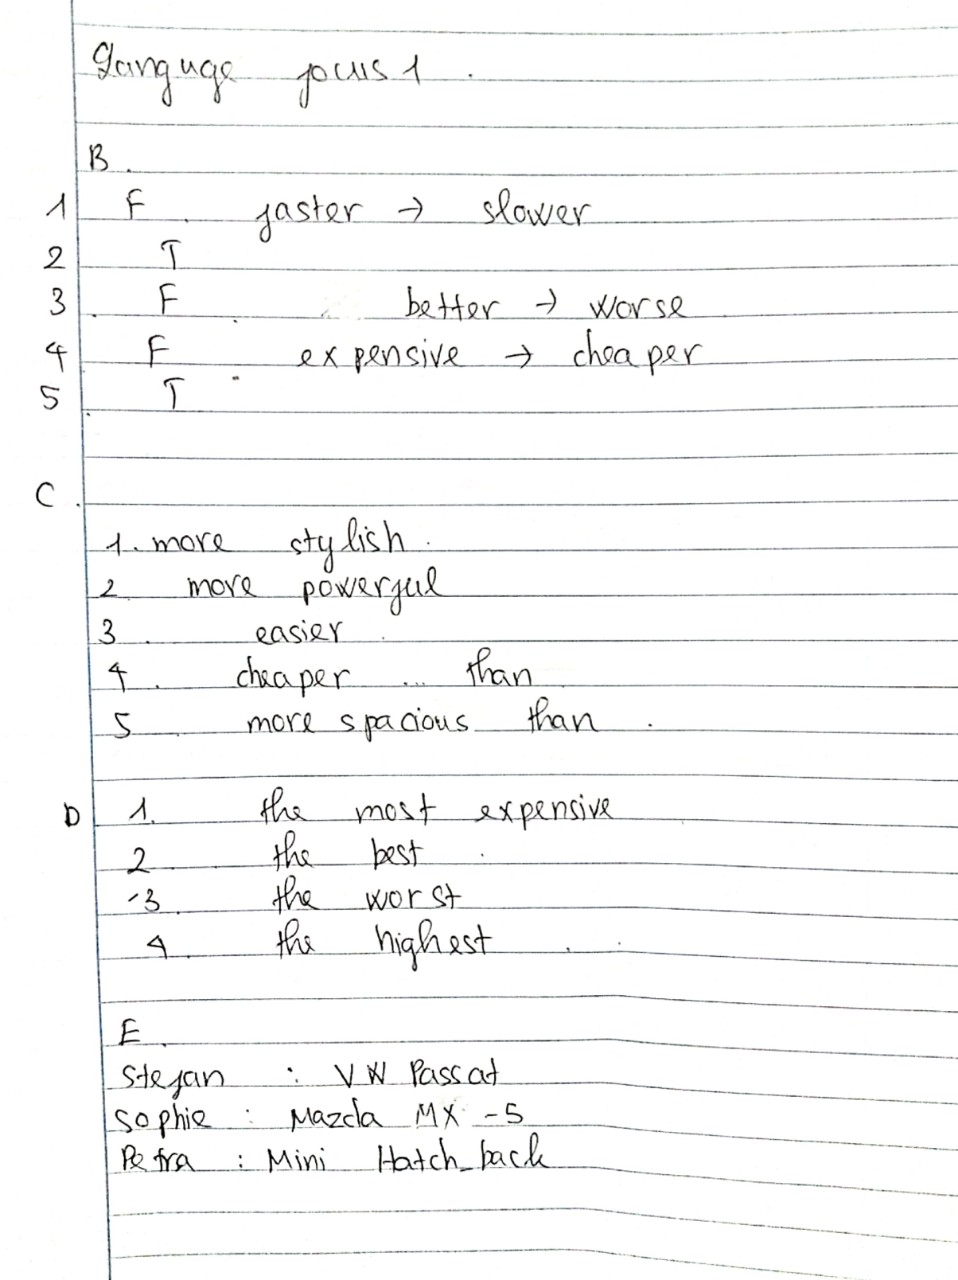 Languge focus 1
B.
1 F faster → slower
2 T
3 F better → worse
4 F expensive → cheaper
5 T
C.
1. more stylish
2 more powerful
3 easier
4. cheaper ... than
5 more spacious than
D 1. the most expensive
2 the best
3 the worst
4 the highest
E
Stefan : VW Passat
Sophie : Mazda MX-5
Petra : Mini Hatch_back